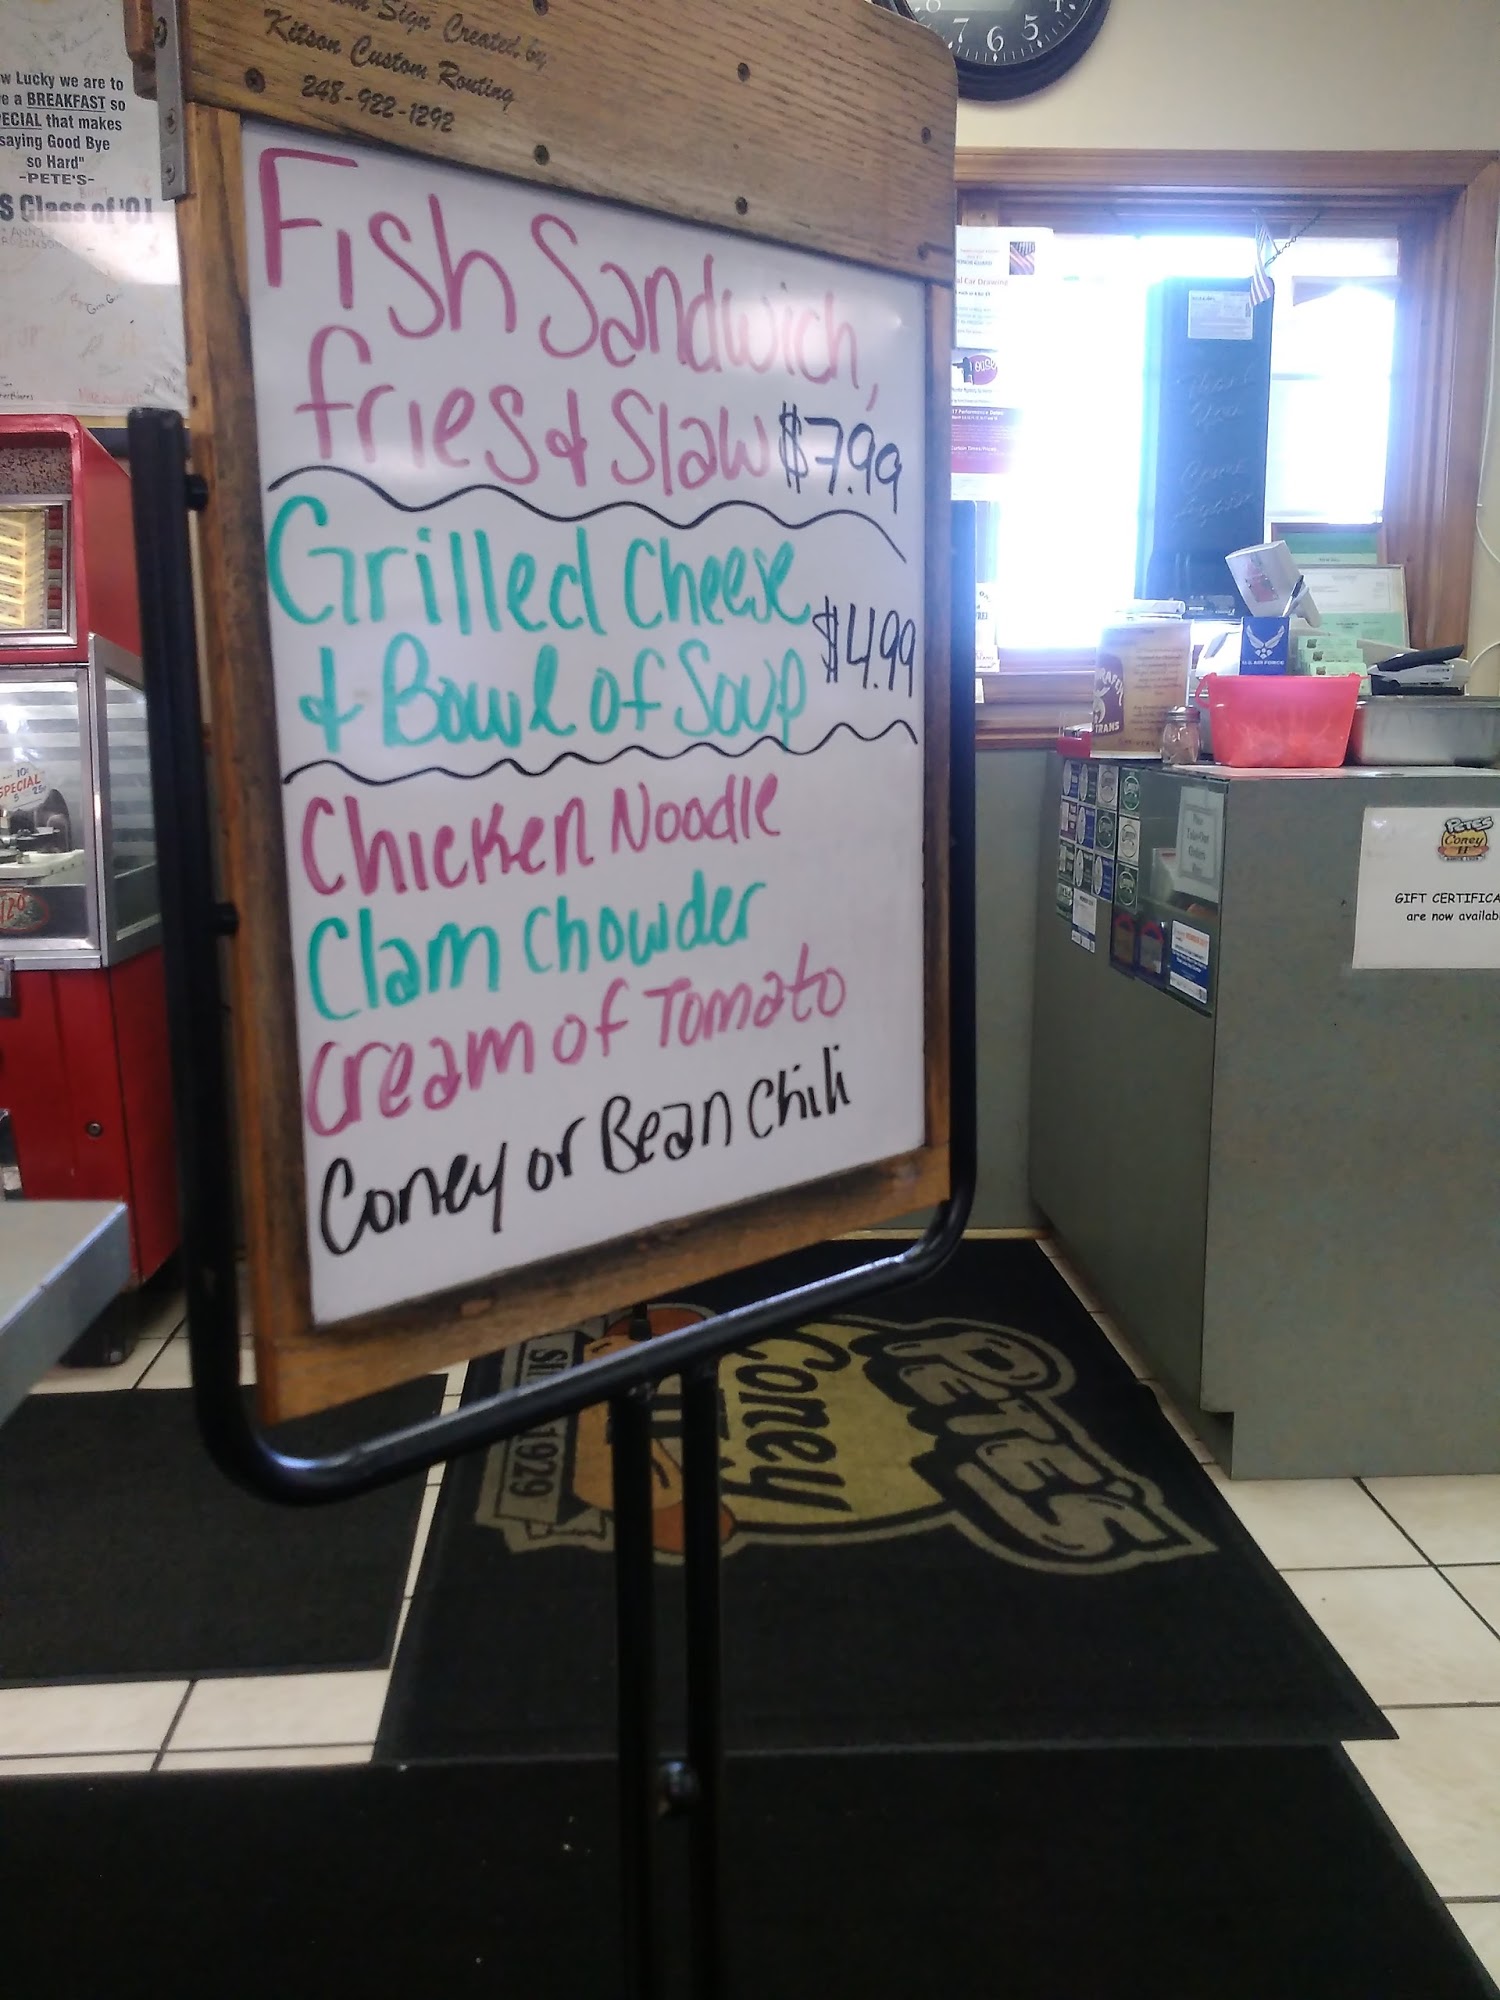 Sign Created by
Kitson Custom Routing
248-922-1292
Lucky we are to
a BREAKFAST so
that makes
saying Good Bye
so Hard"
-PETE'S-
Class of '01
Fish Sandwich,
fries & Slaw $7.99
Grilled Cheese
& Bowl of Soup $4.99
Chicken Noodle
Clam Chowder
Cream of Tomato
Coney or Bean Chili
7 6 5
Thank
You
Come
Again
U.S. AIR FORCE
PETE'S
Coney
II
GIFT CERTIFICA
are now availab
10¢
SPECIAL
5 25¢
PETE'S
Coney
1929